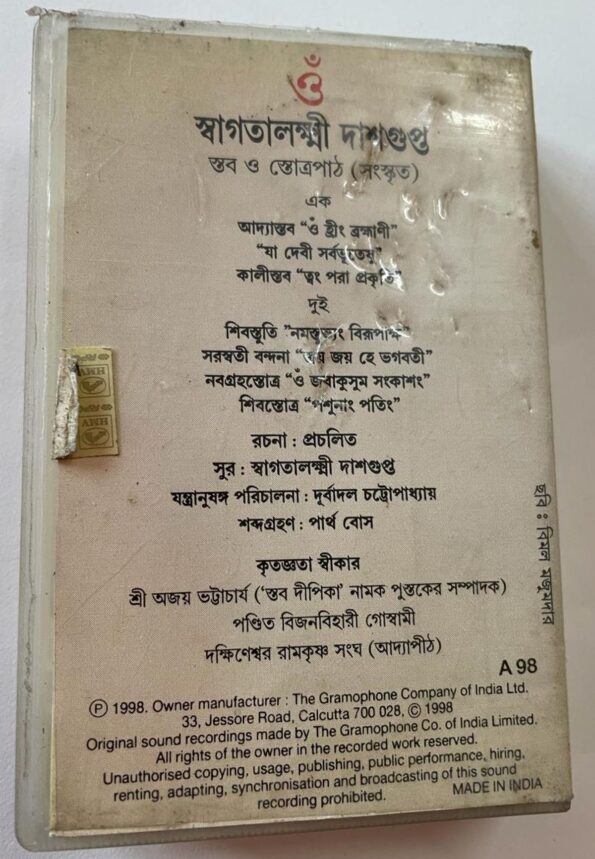 ওঁ
স্বাগতালক্ষ্মী দাশগুপ্ত
স্তব ও স্তোত্রপাঠ (সংস্কৃত)
এক
আদ্যাস্তব “ওঁ হ্রীং ব্রহ্মাণী”
“যা দেবী সর্বভূতেষু”
কালীস্তব “ত্বং পরা প্রকৃতি”
দুই
শিবস্তুতি “নমস্তুভ্যং বিরূপাক্ষ”
সরস্বতী বন্দনা “জয় জয় হে ভগবতী”
নবগ্রহস্তোত্র “ওঁ জবাকুসুম সংকাশং”
শিবস্তোত্র “পশূনাং পতিং”
রচনা : প্রচলিত
সুর : স্বাগতালক্ষ্মী দাশগুপ্ত
যন্ত্রানুষঙ্গ পরিচালনা : দূর্বাদল চট্টোপাধ্যায়
শব্দগ্রহণ : পার্থ বোস
কৃতজ্ঞতা স্বীকার
শ্রী অজয় ভট্টাচার্য (‘স্তব দীপিকা’ নামক পুস্তকের সম্পাদক)
পণ্ডিত বিজনবিহারী গোস্বামী
দক্ষিণেশ্বর রামকৃষ্ণ সংঘ (আদ্যাপীঠ)
ছবি : বিমল মজুমদার
A 98
Ⓟ 1998. Owner manufacturer : The Gramophone Company of India Ltd.
33, Jessore Road, Calcutta 700 028. © 1998
Original sound recordings made by The Gramophone Co. of India Limited.
All rights of the owner in the recorded work reserved.
Unauthorised copying, usage, publishing, public performance, hiring,
renting, adapting, synchronisation and broadcasting of this sound
recording prohibited.
MADE IN INDIA
HMV
HMV